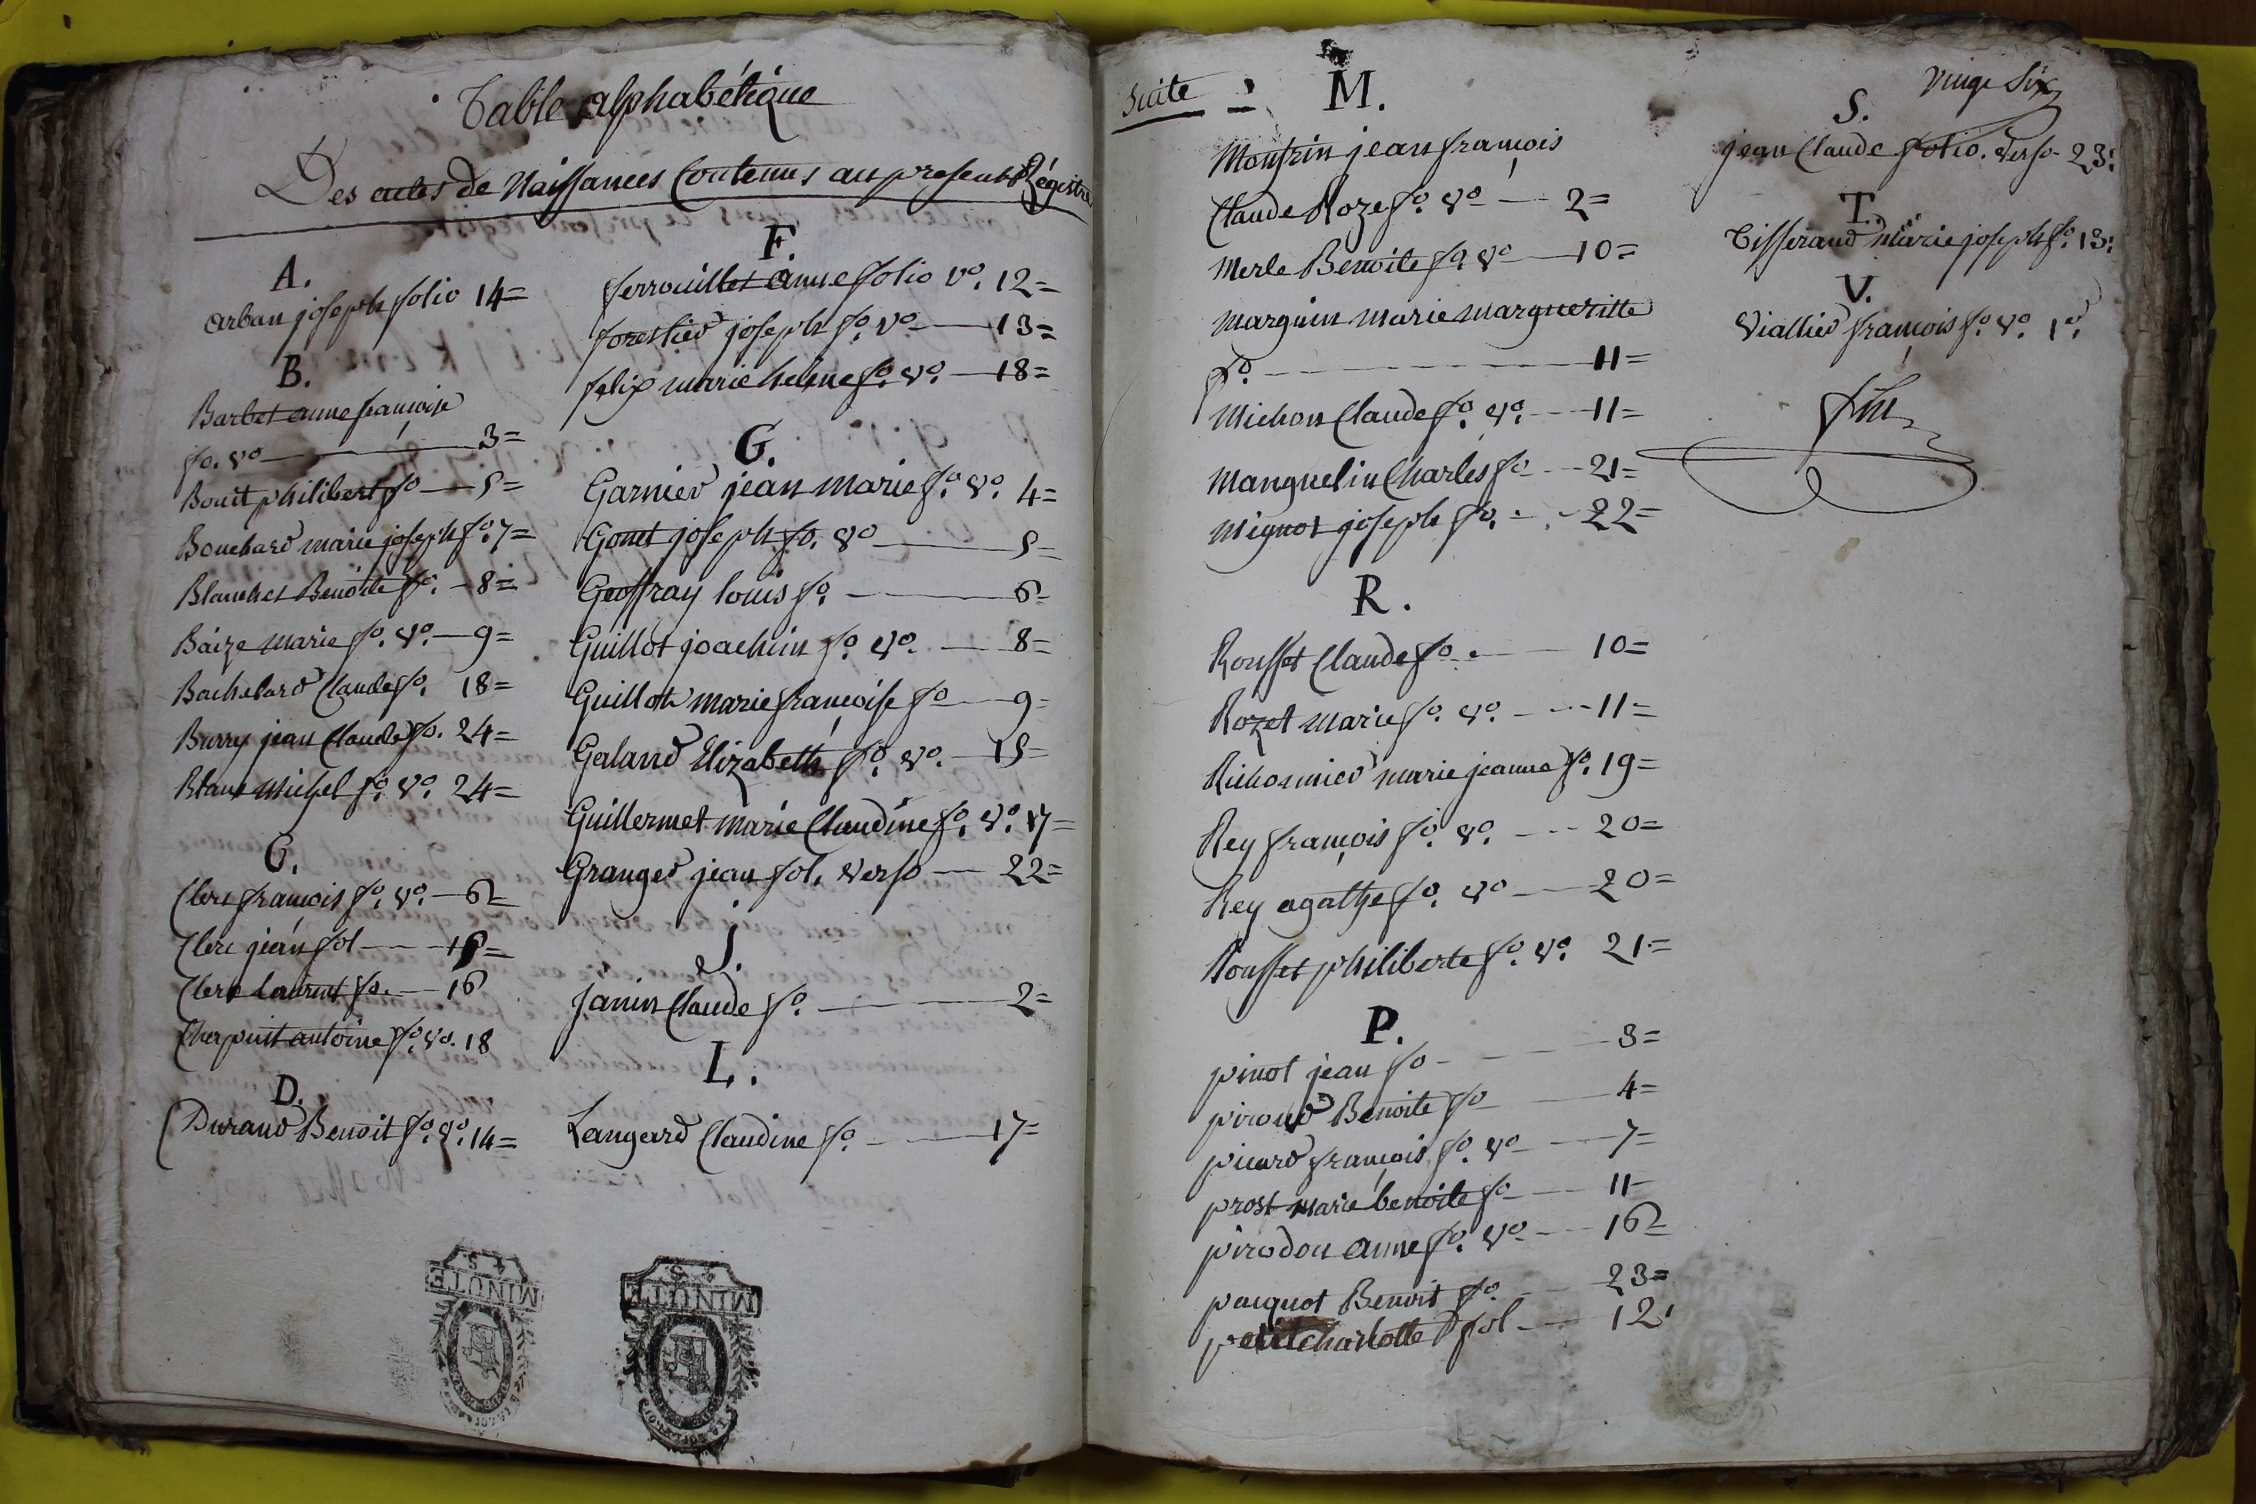 Table alphabétique
Des actes de Naissances Contenus au present Régistre
A.
arban joseph folio 14=
B.
Barbet anne françoise
fo. vo 3=
Bouit philibert fo 5=
Bouchard marie joseph fo. 7=
Blanchet Benoite fo. 8=
Baize marie fo. vo. 9=
Bachelard Claude fo. 18=
Burry jean Claude fo. 24=
Blanc Michel fo. vo. 24=
C.
Clerc françois fo. vo. 6=
Clerc jean fol 15=
Clerc laurent fo. 16
Cherpuit antoine fo. vo. 18
D.
Durand Benoit fo. vo. 14=
F.
ferrouillet anne folio vo. 12=
forestier joseph fo. vo. 13=
felix marie helene fo. vo. 18=
G.
Garnier jean marie fo. vo. 4=
Gonet joseph fo. vo 5=
Geoffray louis fo. 6=
Guillot joachim fo. vo. 8=
Guillot marie françoise fo 9=
Galand Elizabeth fo. vo. 15=
Guillermet marie Claudine fo. vo. 17=
Granger jean fol. verso 22=
J.
Janin Claude fo. 2=
L.
Langard Claudine fo. 17=
4 S
MINUTE
4 S
MINUTE
Suite
M.
Monfrin jean françois
Claude Roze fo. vo 2=
Merle Benoite fo. vo 10=
Marguin Marie Margueritte
fo. 11=
Michon Claude fo. vo. 11=
Manguelin Charles fo 21=
Mignot joseph fo. 22=
R.
Rousset Claude fo. 10=
Rozet Marie fo. vo. 11=
marie jeanne fo. 19=
Rey françois fo. vo. 20=
Rey agathe fo. vo 20=
Rousset philiberte fo. vo. 21=
P.
pinot jean fo 3=
piroud Benoite fo 4=
picard françois fo. vo 7=
prost marie benoite fo 11=
pirodon anne fo. vo 16=
paquot Benoit fo. 23=
petit charlotte fol 12
Vingt Six
S.
jean Claude folio. verso 23:
T.
Tisserand Marie joseph fo. 13:
V.
Viallier françois fo. vo. 1er
fin